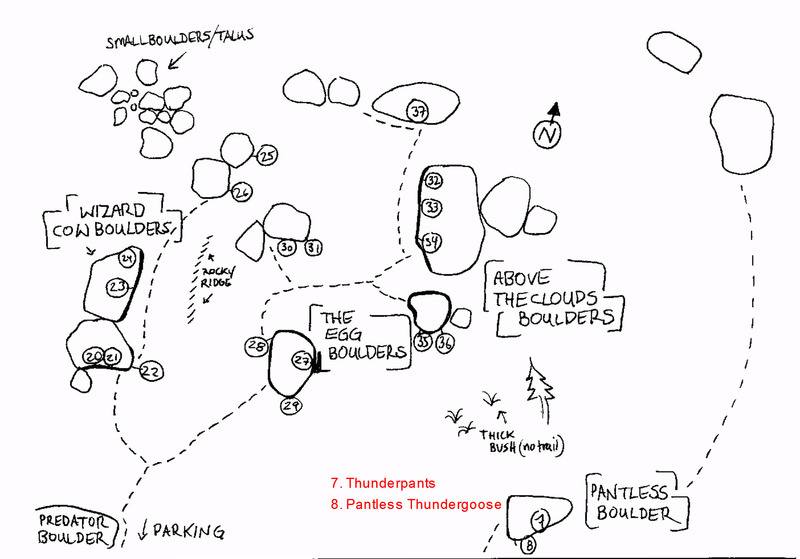 SMALL BOULDERS/TALUS
37
N
25
26
32
33
34
WIZARD
COW BOULDERS
30
31
24
23
ROCKY
RIDGE
ABOVE
THE CLOUDS
BOULDERS
THE
EGG
BOULDERS
28
27
29
35
36
20
21
22
THICK
BUSH (no trail)
7. Thunderpants
8. Pantless Thundergoose
PANTLESS
BOULDER
7
8
PREDATOR
BOULDER
PARKING